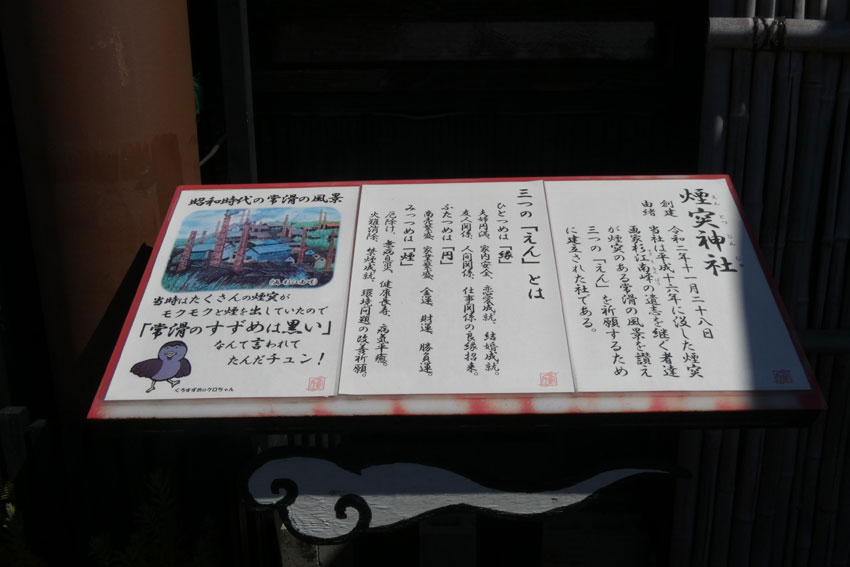 煙突神社
えんとつじんじゃ
創建　令和二年十一月二十八日
由緒　当社は平成十六年に没した煙突
画家杉江南峰の遺志を継ぐ者達
が煙突のある常滑の風景を讃え
三つの「えん」を祈願するため
に建立された社である。
三つの「えん」とは
ひとつめは「縁」
夫婦円満、家内安全、恋愛成就、結婚成就。
友人関係、人間関係、仕事関係の良縁招来。
ふたつめは「円」
商売繁盛、家業繁盛、金運、財運、勝負運。
みっつめは「煙」
厄除け、無病息災、健康長寿、病気平癒。
火難消除、禁煙成就、環境問題の改善祈願。
昭和時代の常滑の風景
当時はたくさんの煙突が
モクモクと煙を出していたので
「常滑のすずめは黒い」
なんて言われて
たんだチュン！
くろすずめのクロちゃん